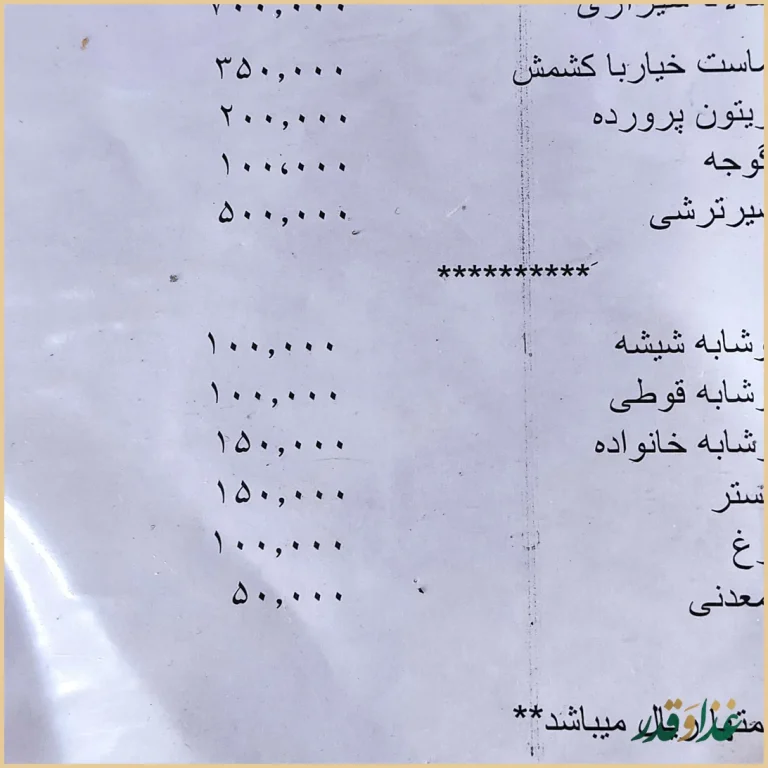 شیرازی ۷۰۰,۰۰۰
ماست خیاربا کشمش ۳۵۰,۰۰۰
زیتون پرورده ۲۰۰,۰۰۰
گوجه ۱۰۰,۰۰۰
سیرترشی ۵۰۰,۰۰۰
**********
نوشابه شیشه ۱۰۰,۰۰۰
نوشابه قوطی ۱۰۰,۰۰۰
نوشابه خانواده ۱۵۰,۰۰۰
ستر ۱۵۰,۰۰۰
وغ ۱۰۰,۰۰۰
معدنی ۵۰,۰۰۰
ریال میباشد**
غذا و قدر